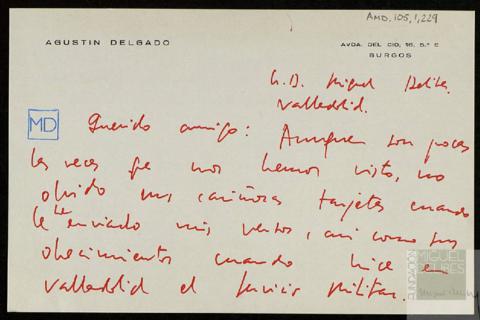 AMD, 105,1,229
AGUSTIN DELGADO
AVDA. DEL CID, 16, 5.º C
BURGOS
Sr. D. Miguel Delibes.
Valladolid.
MD
Querido amigo: Aunque son pocas
las veces que nos hemos visto, no
olvido sus cariñosas tarjetas cuando
le he enviado mis versos, así como sus
ofrecimientos cuando hice en
Valladolid el servicio militar.
FUNDACIÓN
MIGUEL
DELIBES